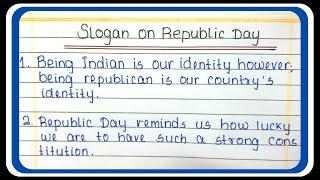 Slogan on Republic Day
1. Being Indian is our identity however,
being republican is our country's
identity.
2. Republic Day reminds us how lucky
we are to have such a strong cons
titution.